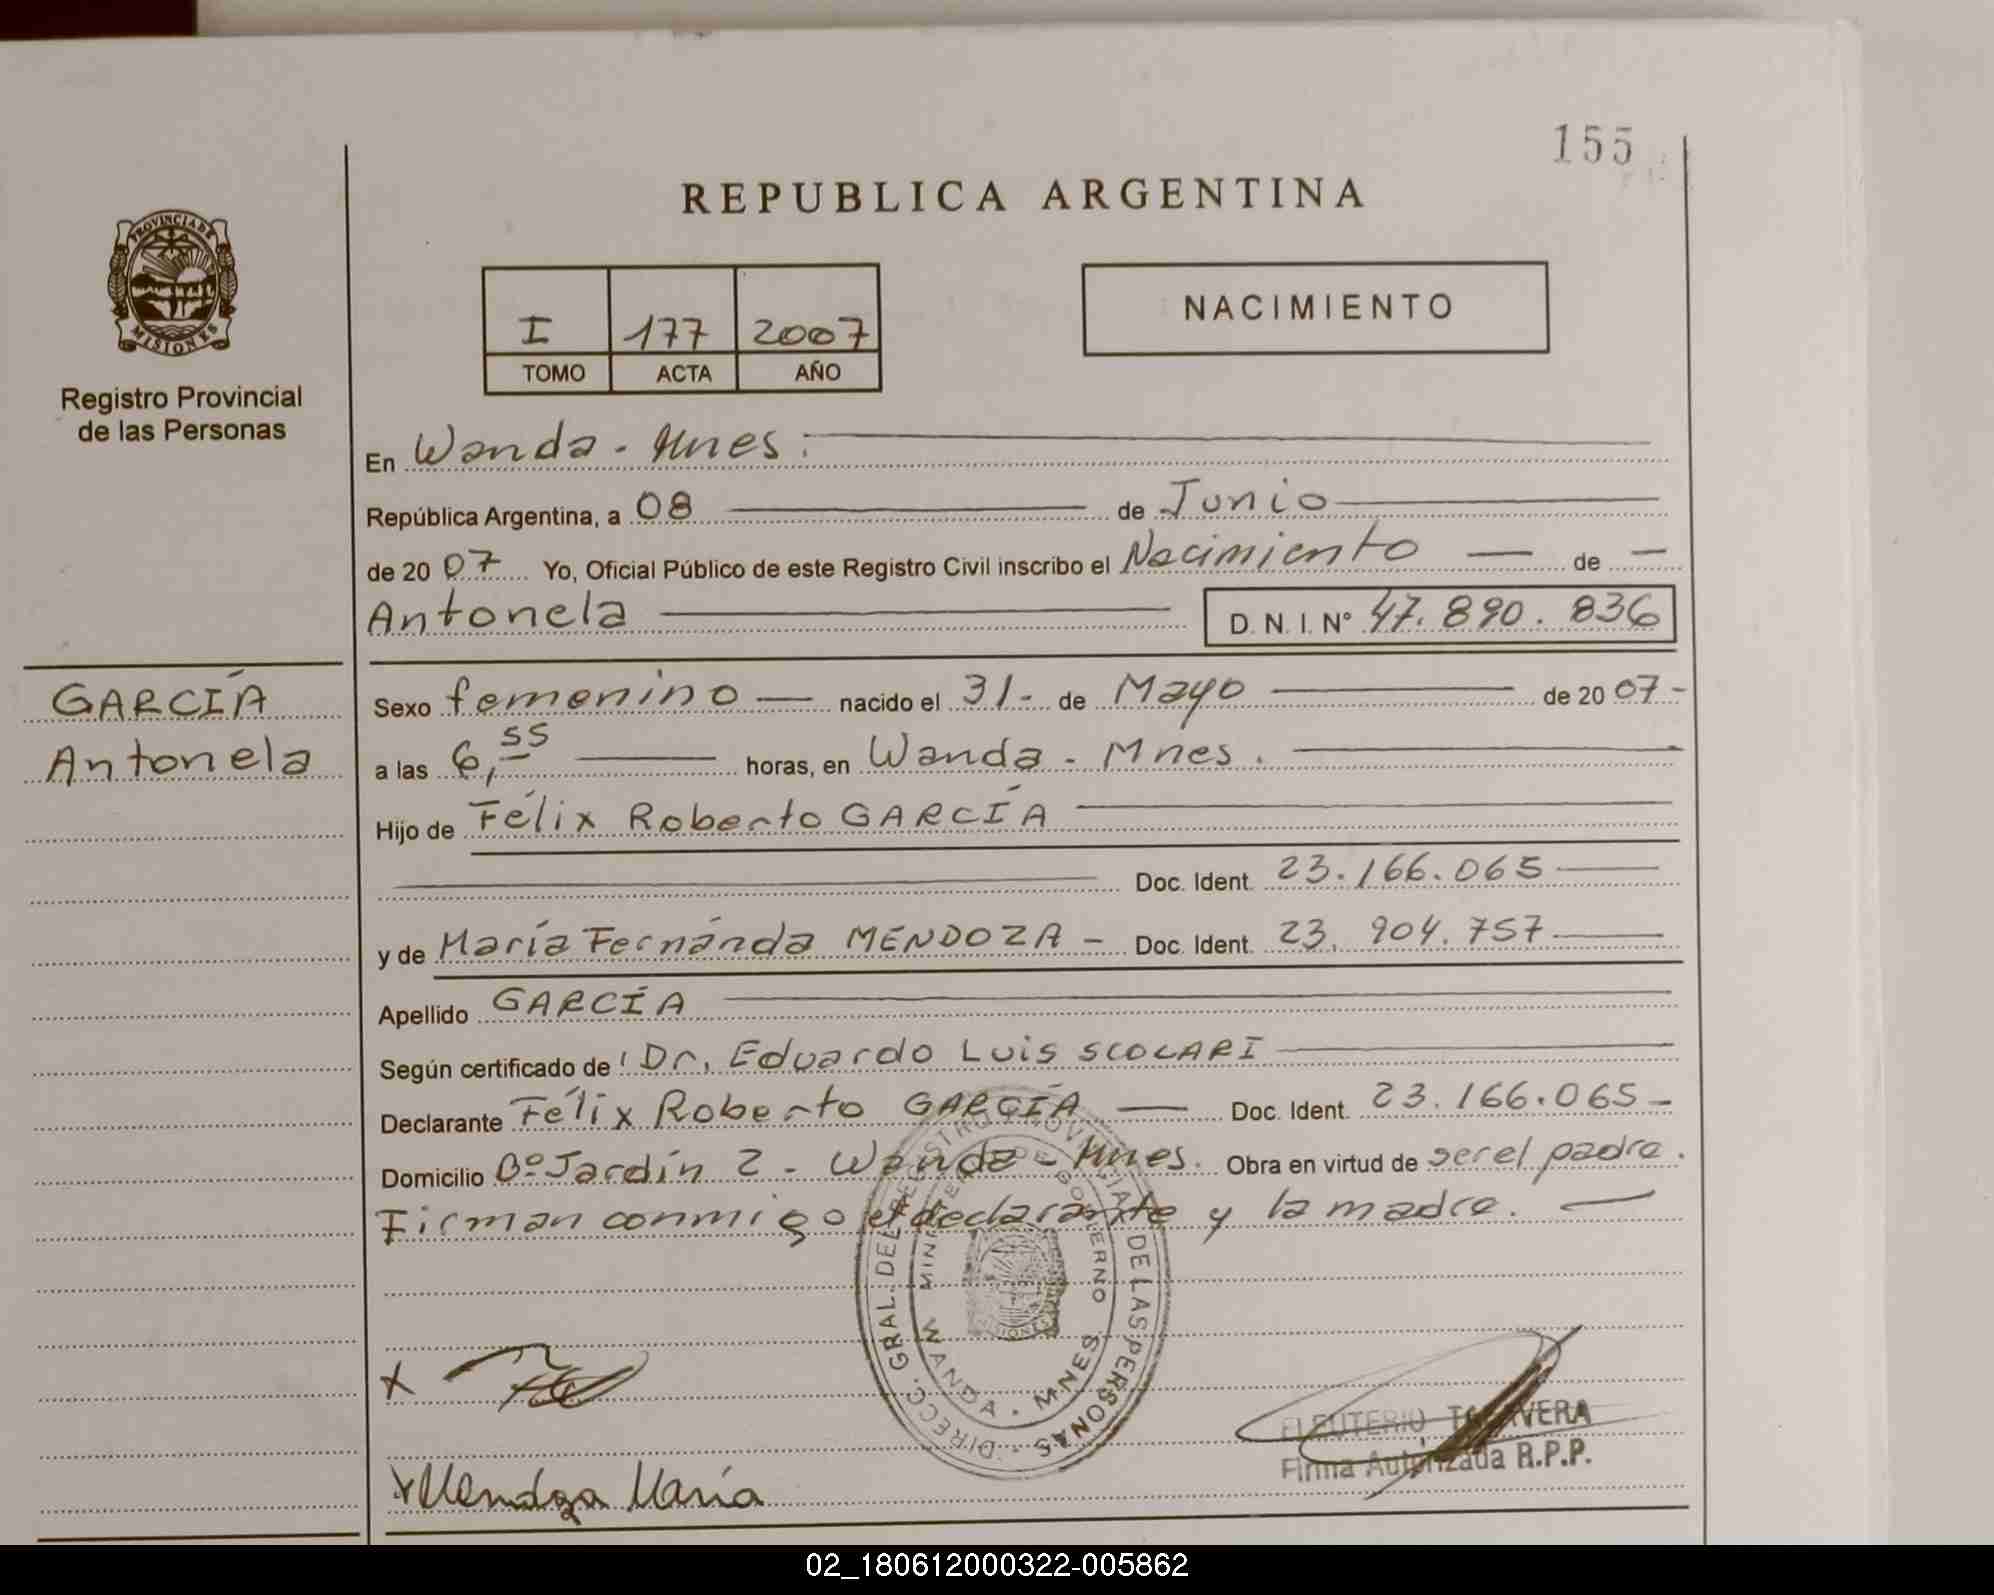 155
REPUBLICA ARGENTINA
PROVINCIA DE
MISIONES
Registro Provincial
de las Personas
I 177 2007
TOMO ACTA AÑO
NACIMIENTO
En Wanda - Mnes.
República Argentina, a 08 de Junio
de 2007 Yo, Oficial Público de este Registro Civil inscribo el Nacimiento de
Antonela D. N. I. N° 47.890.836
GARCÍA
Antonela
Sexo femenino nacido el 31- de Mayo de 2007-
a las 6,55 horas, en Wanda - Mnes.
Hijo de Félix Roberto GARCÍA
Doc. Ident. 23.166.065
y de María Fernánda MENDOZA - Doc. Ident. 23.904.757
Apellido GARCÍA
Según certificado de Dr. Eduardo Luis SCOLARI
Declarante Félix Roberto GARCÍA Doc. Ident. 23.166.065-
Domicilio B° Jardín 2 - Wanda - Mnes. Obra en virtud de ser el padre.
Firman conmigo el declarante y la madre.
DIRECC. GRAL. DEL REGISTRO PROVINCIAL DE LAS PERSONAS
MINISTERIO DE GOBIERNO
WANDA - MNES
MISIONES
x
ELEUTERIO TALAVERA
Firma Autorizada R.P.P.
x Mendoza María
02_180612000322-005862